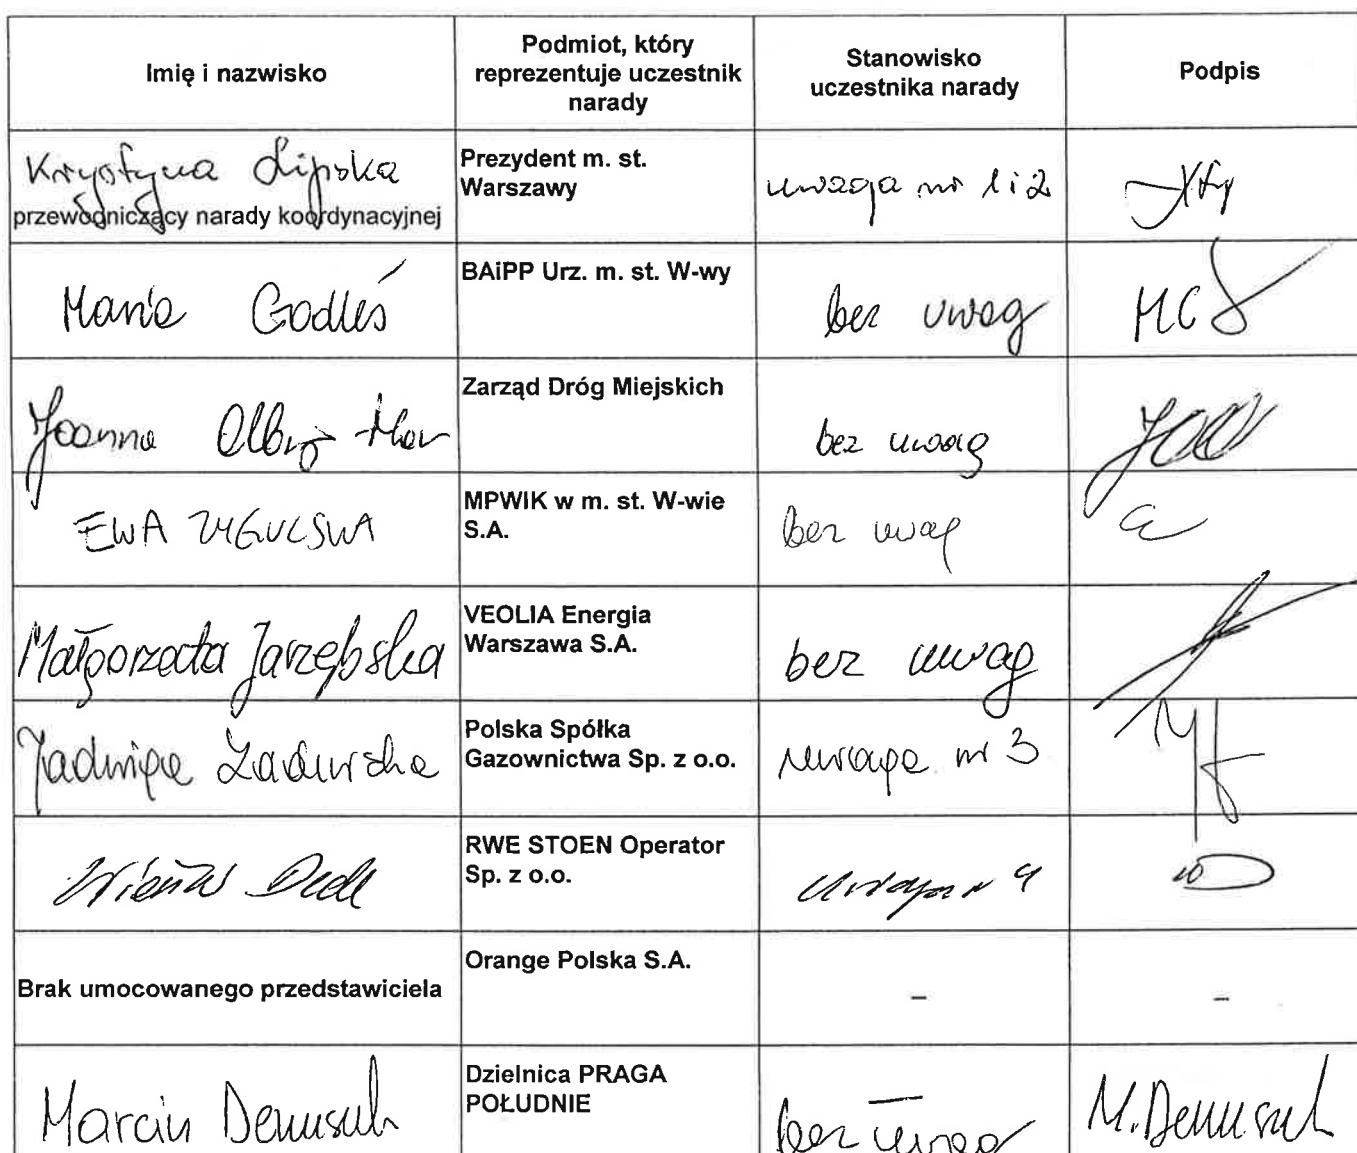 Imię i nazwisko
Podmiot, który
reprezentuje uczestnik
narady
Stanowisko
uczestnika narady
Podpis
Krystyna Lipska
przewodniczący narady koordynacyjnej
Prezydent m. st.
Warszawy
uwaga nr 1 i 2
Maria Godleś
BAiPP Urz. m. st. W-wy
bez uwag
MG
Joanna
Zarząd Dróg Miejskich
bez uwag
EWA
MPWIK w m. st. W-wie
S.A.
bez uwag
Małgorzata Jarzębska
VEOLIA Energia
Warszawa S.A.
bez uwag
Jadwiga
Polska Spółka
Gazownictwa Sp. z o.o.
uwaga nr 3
RWE STOEN Operator
Sp. z o.o.
uwaga nr 4
Brak umocowanego przedstawiciela
Orange Polska S.A.
–
–
Marcin
Dzielnica PRAGA
POŁUDNIE
bez uwag
M.